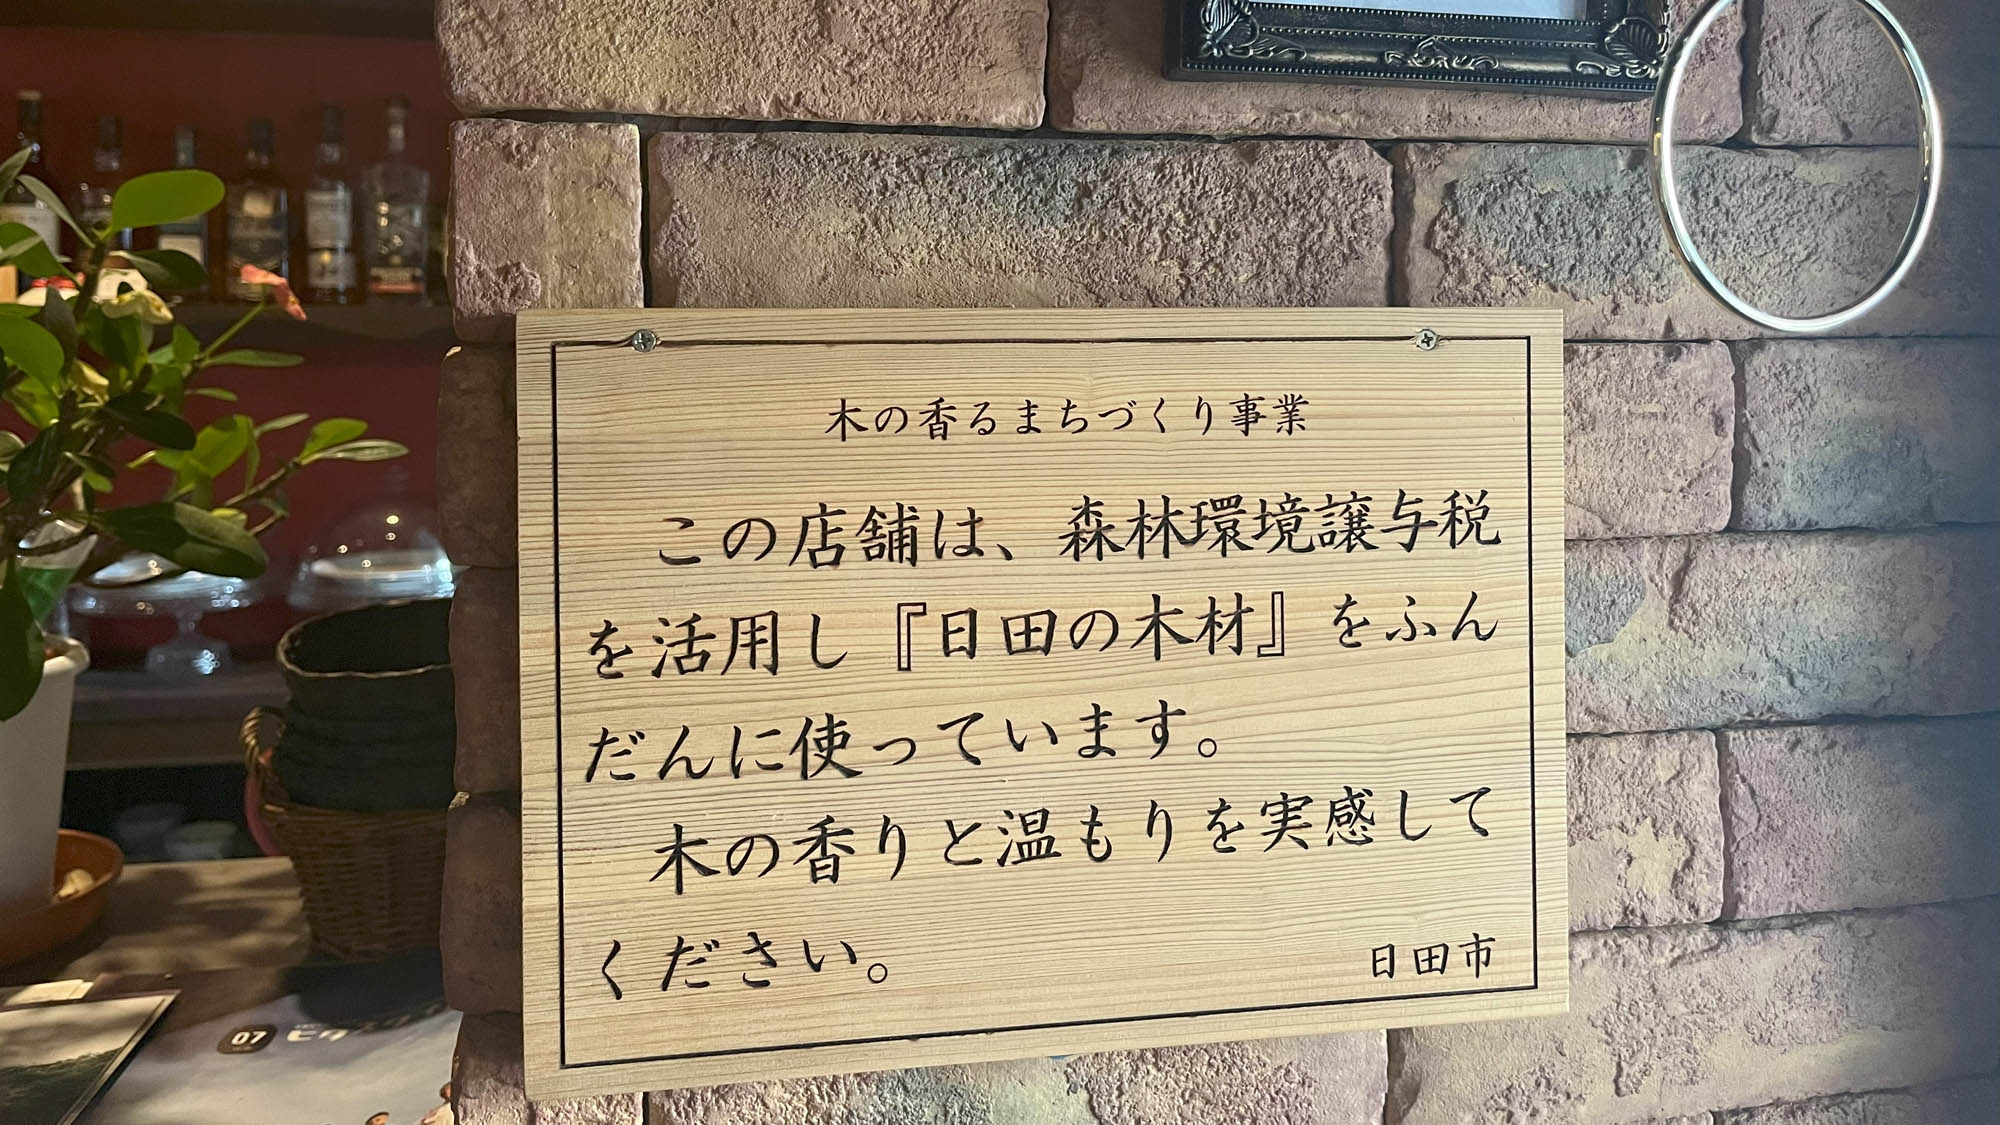 木の香るまちづくり事業
この店舗は、森林環境譲与税
を活用し『日田の木材』をふん
だんに使っています。
木の香りと温もりを実感して
ください。
日田市
07